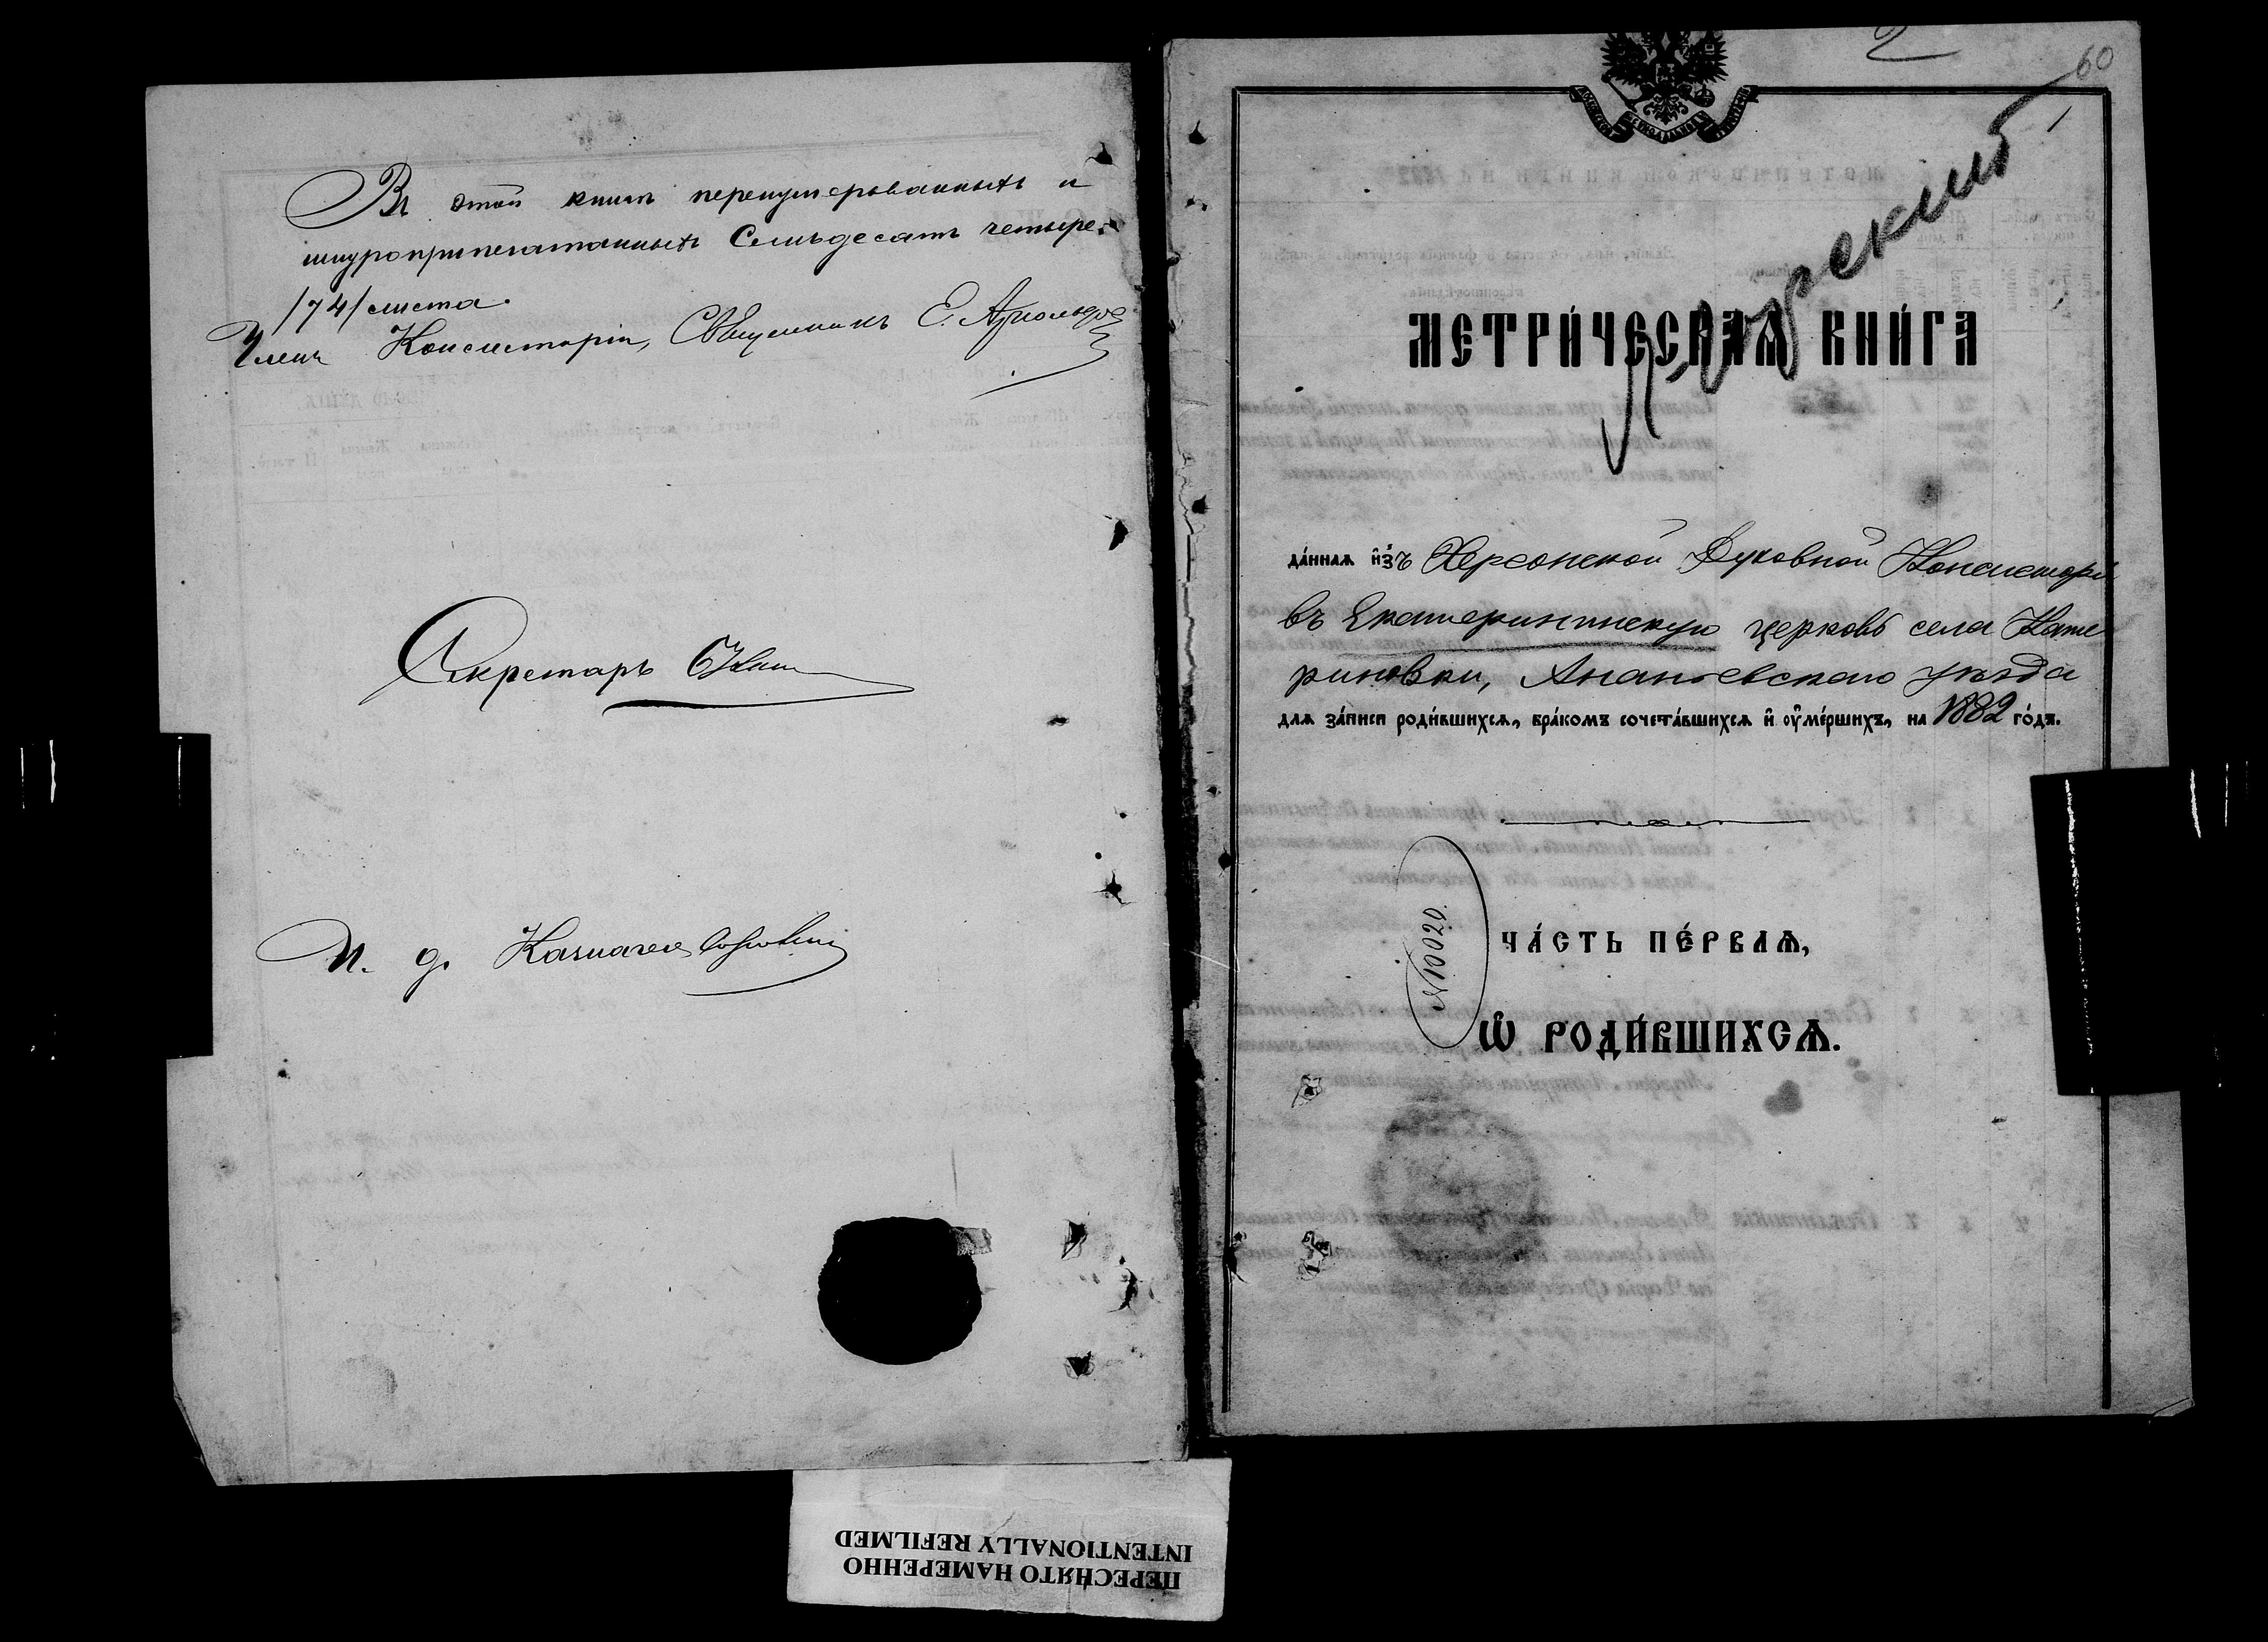 Въ этой книгѣ перенумерованныхъ и
шнуроприпечатанныхъ Семьдесятъ четыре
/74/ листа.
Членъ Консисторіи, Священникъ Е.
Секретарь
И. д. Казначея
2
60
1
МЕТРИ́ЧЕСКАѦ КНИ́ГА
да́ннаѧ и҆зъ Херсонской Духовной Консисторі
въ Екатерининскую церковь села Кате
риновки, Ананьевскаго уѣзда
длѧ за́писи роди́вшихсѧ, бра́комъ сочета́вшихсѧ и҆ ᲂу҆ме́ршихъ, на 1882 го́дъ.
№10020
ЧА́СТЬ ПЕ́РВАѦ,
Ѡ҆ РОДИ́ВШИХСѦ.
ПЕРЕСНЯТО НАМЕРЕННО
INTENTIONALLY REFILMED